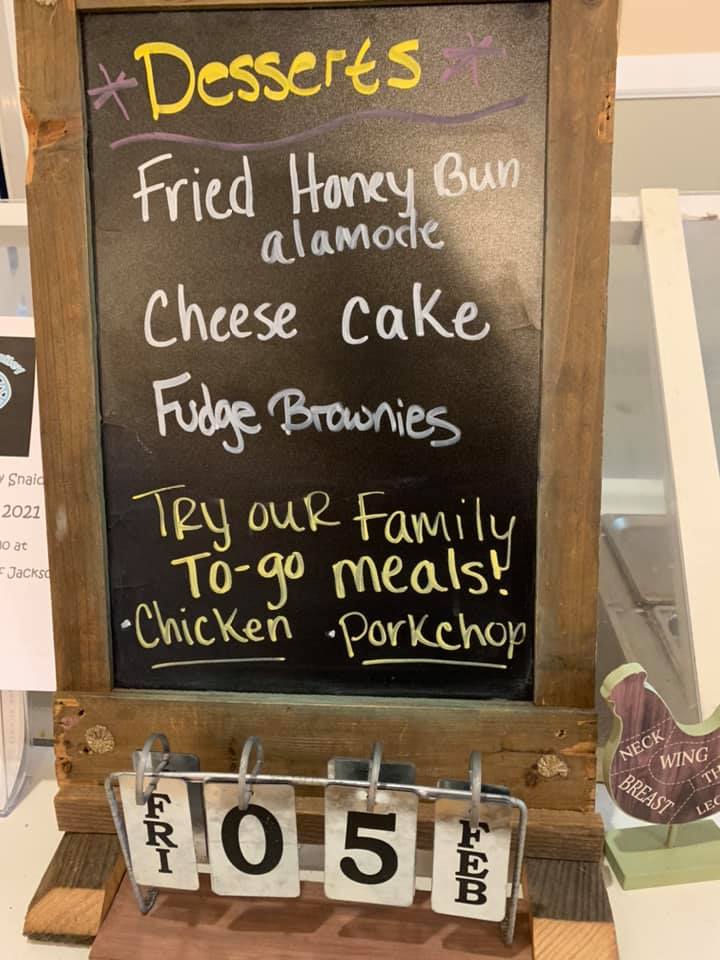 *Desserts*
Fried Honey Bun
alamode
Cheese cake
Fudge Brownies
Try our Family
To-go meals!
·Chicken ·Porkchop
FRI 05 FEB
2021
at
NECK
WING
BREAST